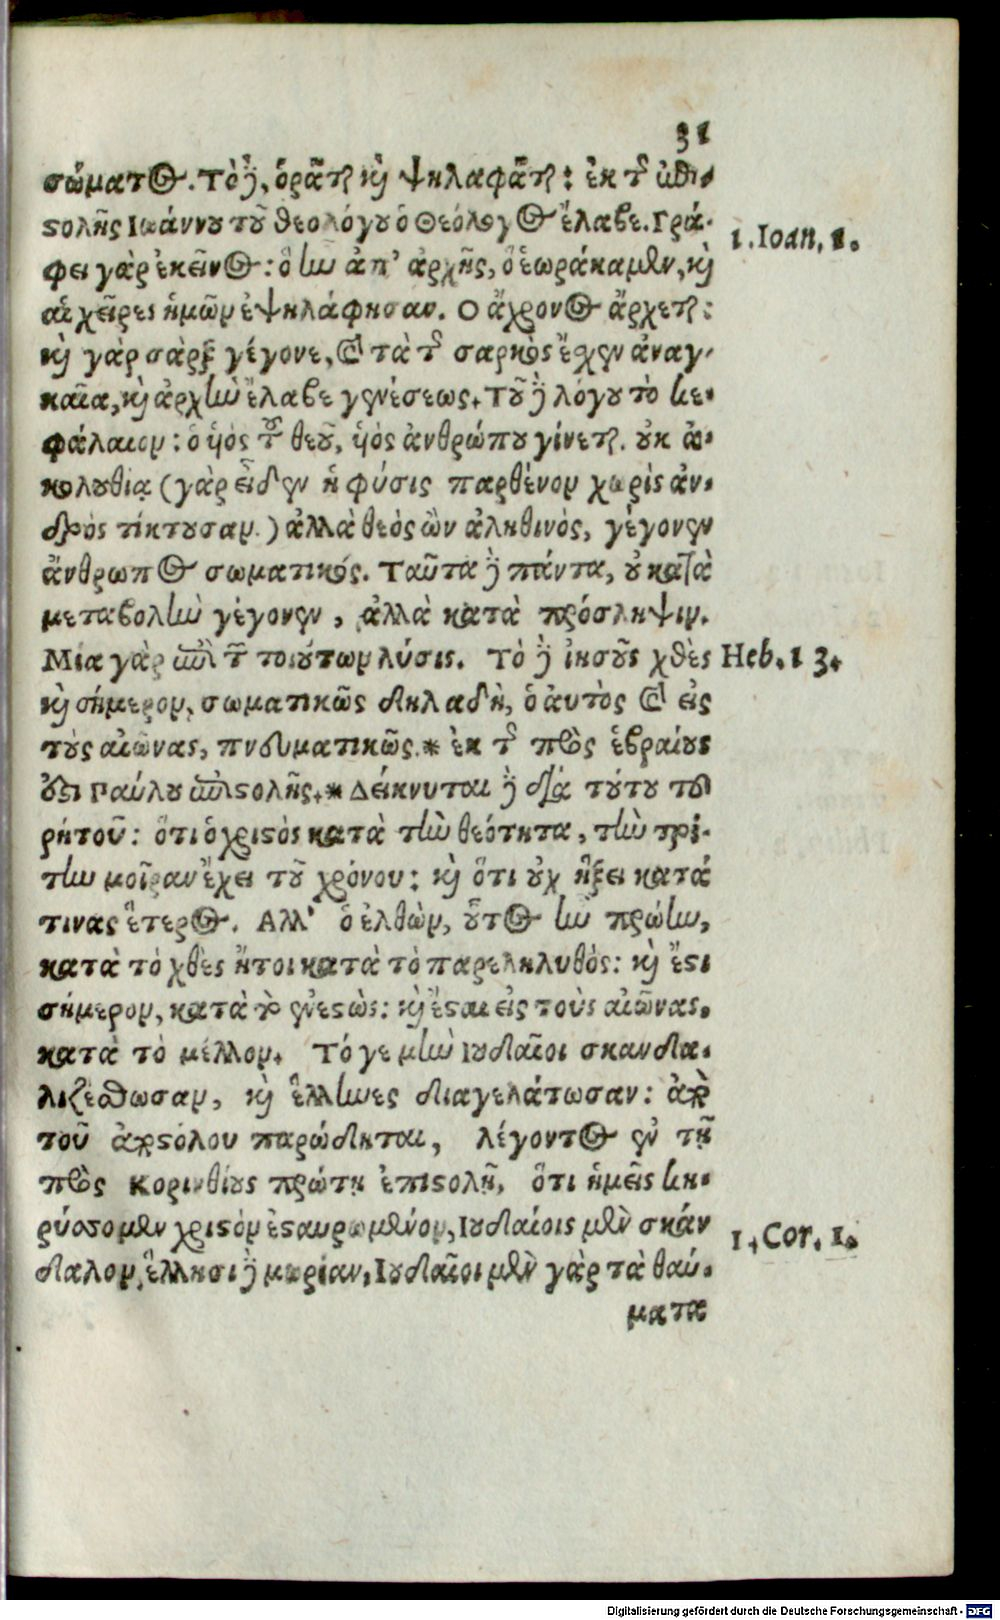 31
σώματος. Τὸ δὲ, ὁρᾶται καὶ ψηλαφᾶται: ἐκ τῆς ἐπι-
στολῆς Ιωάννου τοῦ θεολόγου ὁ Θεόλογος ἔλαβε. Γρά-
φει γὰρ ἐκεῖνος: ὃ ἦν ἀπ' ἀρχῆς, ὃ ἑωράκαμεν, καὶ
αἱ χεῖρες ἡμῶν ἐψηλάφησαν. Ο ἄχρονος ἄρχεται:
καὶ γὰρ σὰρξ γέγονε, καὶ τὰ τῆς σαρκὸς ἔχων ἀναγ-
καῖα, καὶ ἀρχὴν ἔλαβε γενέσεως. Τοῦ δὲ λόγου τὸ κε-
φάλαιον: ὁ υἱὸς τοῦ θεοῦ, υἱὸς ἀνθρώπου γίνεται. οὐκ ἀ-
κολουθίᾳ (γὰρ εἶδεν ἡ φύσις παρθένον χωρὶς ἀν-
δρὸς τίκτουσαν.) ἀλλὰ θεὸς ὢν ἀληθινὸς, γέγονεν
ἄνθρωπος σωματικός. Ταῦτα δὲ πάντα, οὐ κατὰ
μεταβολὴν γέγονεν, ἀλλὰ κατὰ πρόσληψιν.
Μία γὰρ ἐπὶ τῶν τοιούτων λύσις. Τὸ δὲ ἰησοῦς χθὲς
καὶ σήμερον, σωματικῶς δηλαδὴ, ὁ αὐτὸς καὶ εἰς
τοὺς αἰῶνας, πνευματικῶς.* ἐκ τῆς πρὸς ἑβραίους
ἐστι Παύλου ἐπιστολῆς.* Δείκνυται δὲ διὰ τούτου τοῦ
ῥητοῦ: ὅτι ὁ χριστὸς κατὰ τὴν θεότητα, τὴν τρί-
την μοῖραν ἔχει τοῦ χρόνου: καὶ ὅτι οὐχ ἥξει κατά
τινας ἕτερος. Αλλ' ὁ ἐλθὼν, οὗτος ἦν πρώην,
κατὰ τὸ χθὲς ἤτοι κατὰ τὸ παρεληλυθὸς: καὶ ἔστι
σήμερον, κατὰ τὸ ἐνεστὼς: καὶ ἔσται εἰς τοὺς αἰῶνας.
κατὰ τὸ μέλλον. Τό γε μὴν Ιουδαῖοι σκανδα-
λιζέσθωσαν, καὶ ἕλληνες διαγελάτωσαν: ἀπὸ
τοῦ ἀποστόλου παρώδηται, λέγοντος ἐν τῇ
πρὸς Κορινθίους πρώτῃ ἐπιστολῇ, ὅτι ἡμεῖς κη-
ρύσσομεν χριστὸν ἐσταυρωμένον, Ιουδαίοις μὲν σκάν
δαλον, ἕλλησι δὲ μωρίαν, Ιουδαῖοι μὲν γὰρ τὰ θαύ-
ματα
1. Ioan. 1.
Heb. 13.
1. Cor. 1.
Digitalisierung gefördert durch die Deutsche Forschungsgemeinschaft - DFG